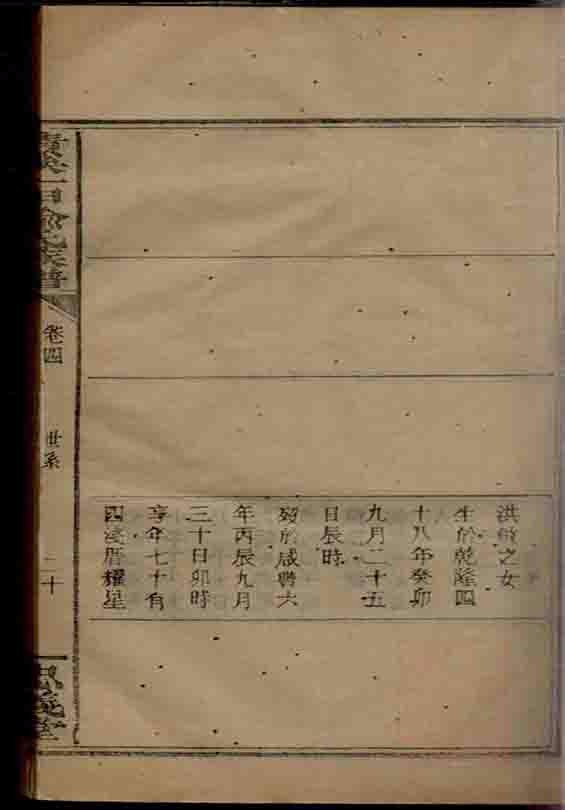 洪敬之女
生於乾隆四
十八年癸卯
九月二十五
日辰時
歿於咸豐六
年丙辰九月
三十日卯時
享年七十有
四淺厝耀星
俞氏族譜
卷四
世系
二十